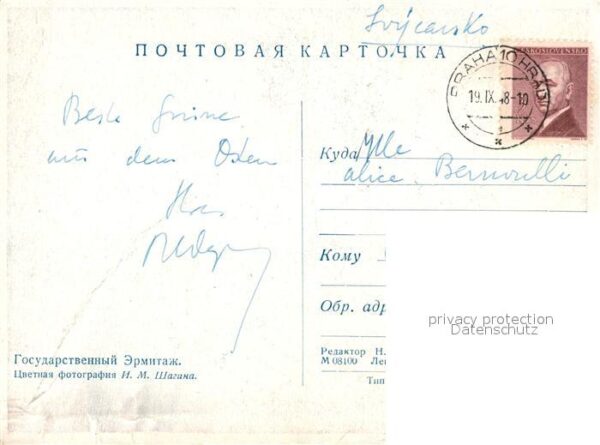 Švýcarsko
ПОЧТОВАЯ КАРТОЧКА
ČESKOSLOVENSKO
PRAHA 10 HRAD
19.IX.48-10
Beste Grüsse
aus dem Osten
Куда Mlle
Alice Bernoulli
Кому
Обр. адр
privacy protection
Datenschutz
Редактор Н.
М 08100 Ле
Тип
Государственный Эрмитаж.
Цветная фотография И. М. Шагина.